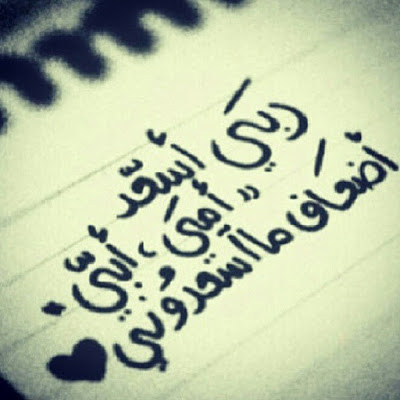 ربي أسعد
" أمي ، أبي .
أضعاف ما أسعدوني ♥